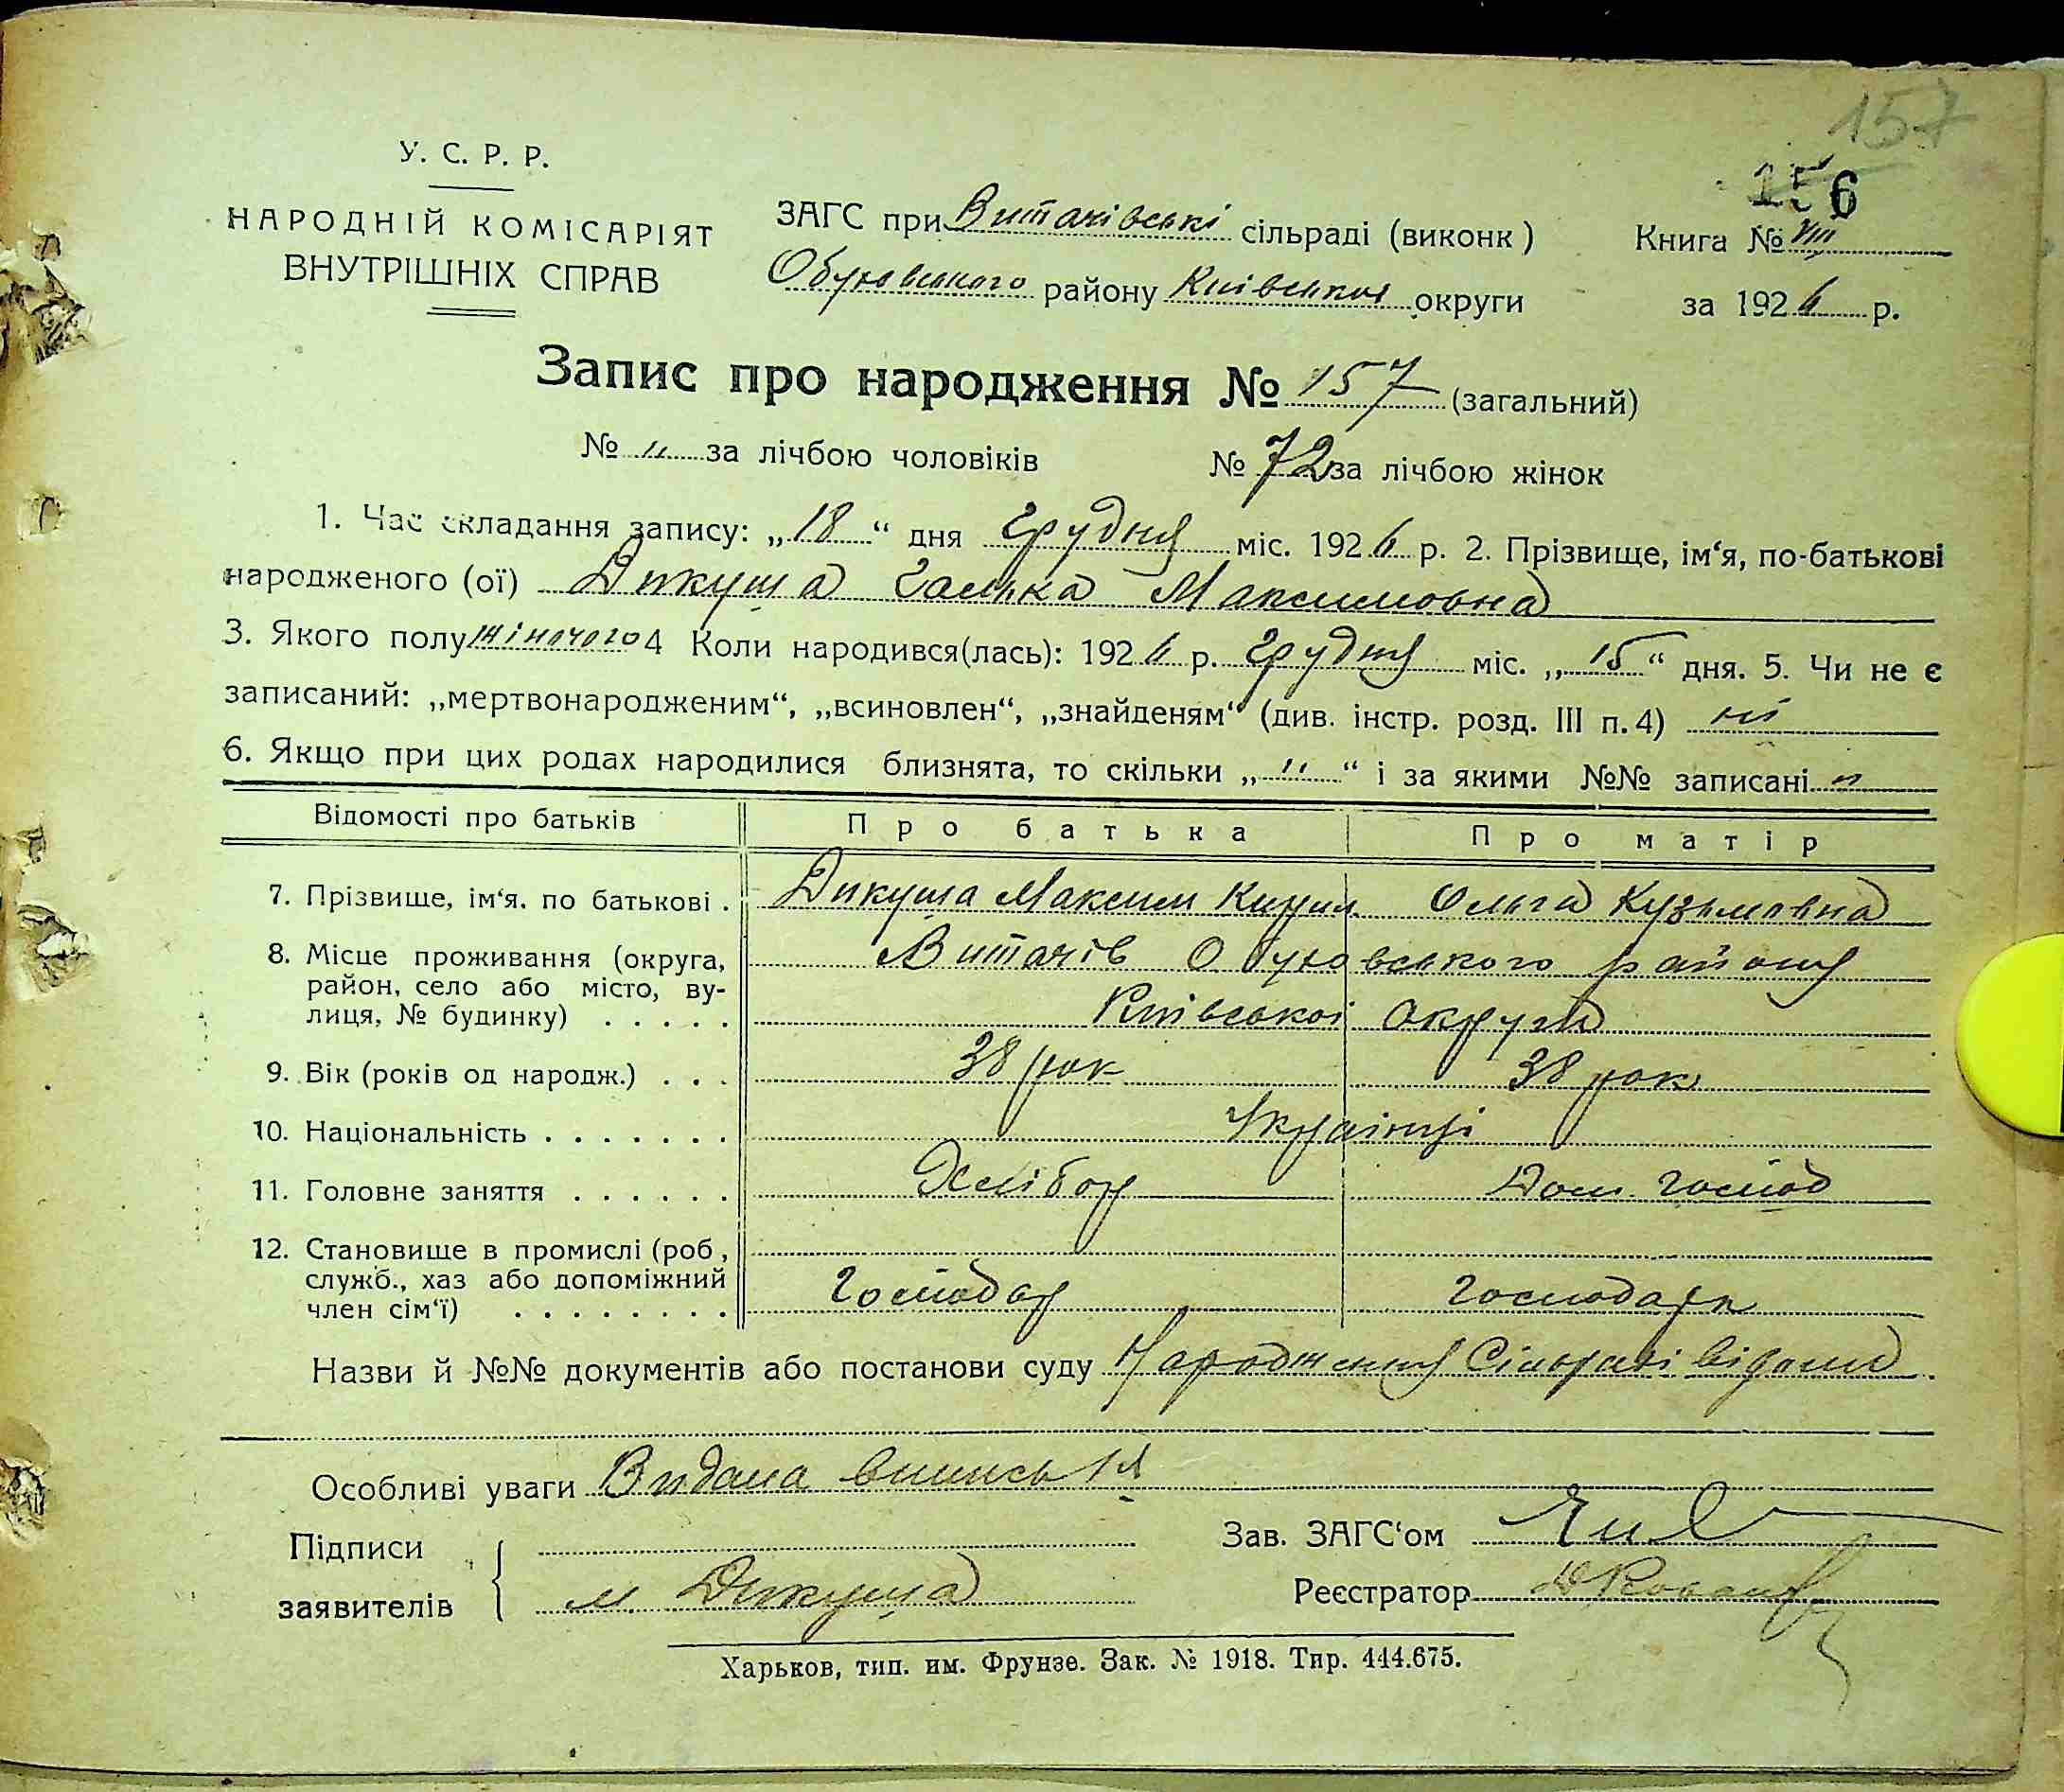 157
У. С. Р. Р.
156
НАРОДНІЙ КОМІСАРІЯТ
ВНУТРІШНІХ СПРАВ
ЗАГС при Витачівські сільраді (виконк)
Книга № VIII
Обуховського району Київської округи
за 1926 р.
Запис про народження № 157 (загальний)
№ " за лічбою чоловіків № 72 за лічбою жінок
1. Час складання запису: „18“ дня Грудня міс. 1926 р. 2. Прізвище, ім‘я, по-батькові
народженого (ої) Дикуша Галька Максимовна
3. Якого полу жіночого 4 Коли народився(лась): 1926 р. Грудня міс. „15“ дня. 5. Чи не є
записаний: „мертвонародженим“, „всиновлен“, „знайденям“ (див. інстр. розд. III п. 4) ні
6. Якщо при цих родах народилися близнята, то скільки „ " “ і за якими №№ записані "
Відомості про батьків Про батька Про матір
7. Прізвище, ім‘я. по батькові . Дикуша Максим Кирил Ольга Кузьмовна
8. Місце проживання (округа, Витачів Обуховського району
район, село або місто, ву-
лиця, № будинку) . . . . . Київської округи
9. Вік (років од народж.) . . . 38 рок 38 рок
10. Національність . . . . . . . Українці
11. Головне заняття . . . . . . Хлібор Дом. господ
12. Становище в промислі (роб,
служб., хаз або допоміжний
член сім‘ї) . . . . . . . . Господар Господарк
Назви й №№ документів або постанови суду Народження Сільраді відомо
Особливі уваги Видана випись
Підписи
заявителів
м Дикуша
Зав. ЗАГС‘ом
Реєстратор
Харьков, тип. им. Фрунзе. Зак. № 1918. Тир. 444.675.